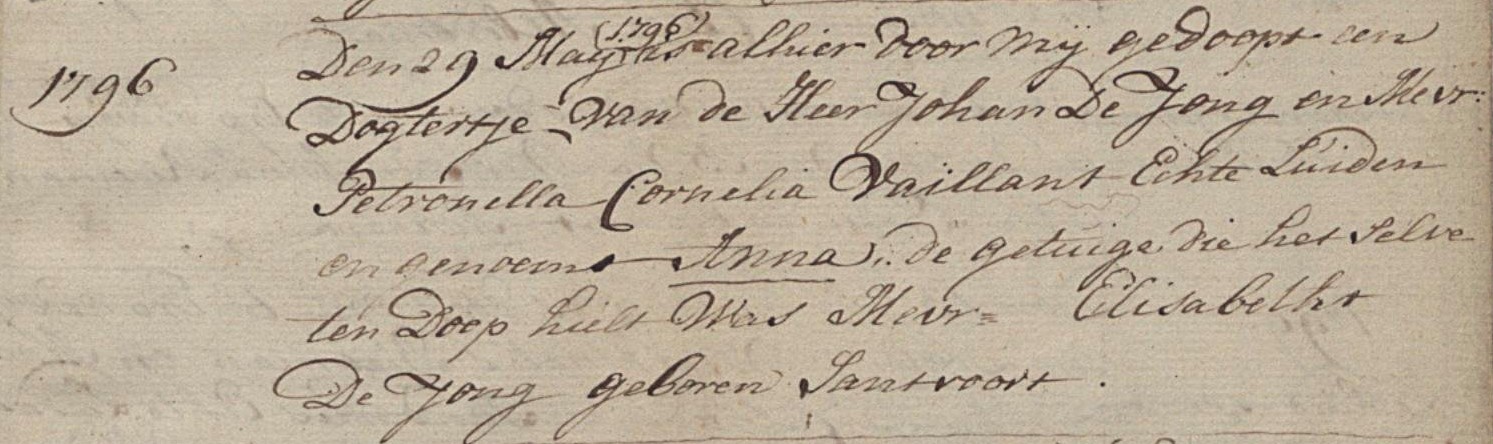 (1796)
1796 Den 29 May is alhier door mij gedoopt een
Dogtertje van de Heer Johan De Jong en Mevr:
Petronella Cornelia Vaillant Echte Luiden
en genoemt Anna, de getuige die het selve
ten Doop hielt Was Mevr= Elisabetht
De Jong geboren Santvoort.